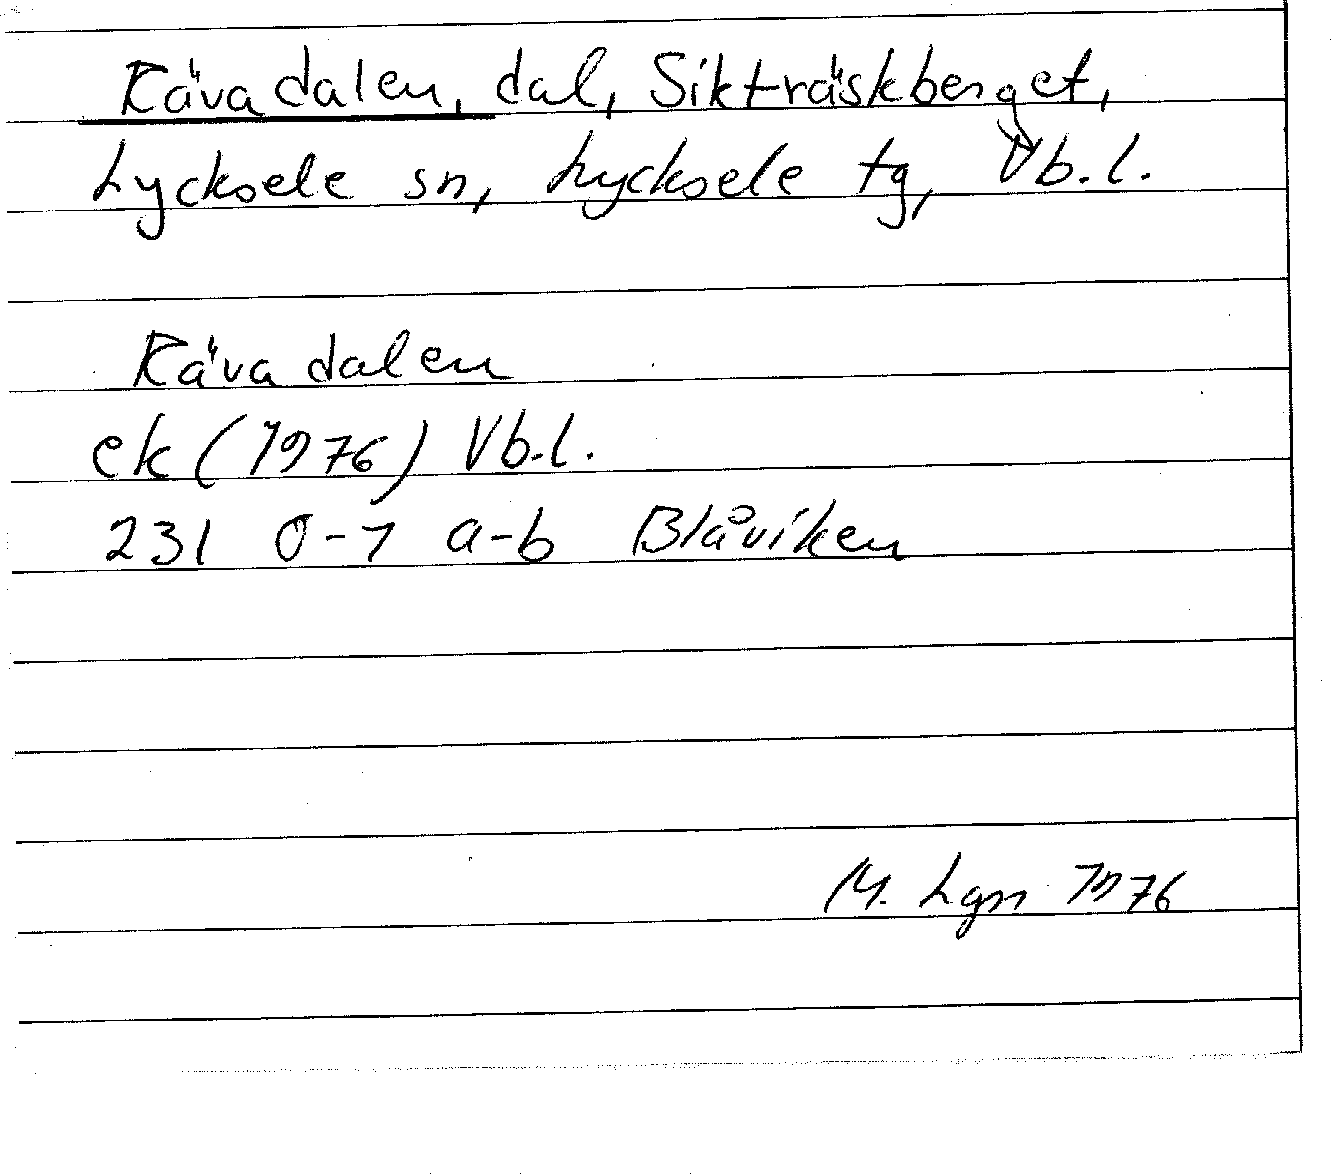 Rävadalen, dal, Sikträskberget,
Lycksele sn, Lycksele tg, Vb.l.
Rävadalen
ek (1976) Vb.l.
231 0-1 a-b Blåviken
M. Lgn 1976